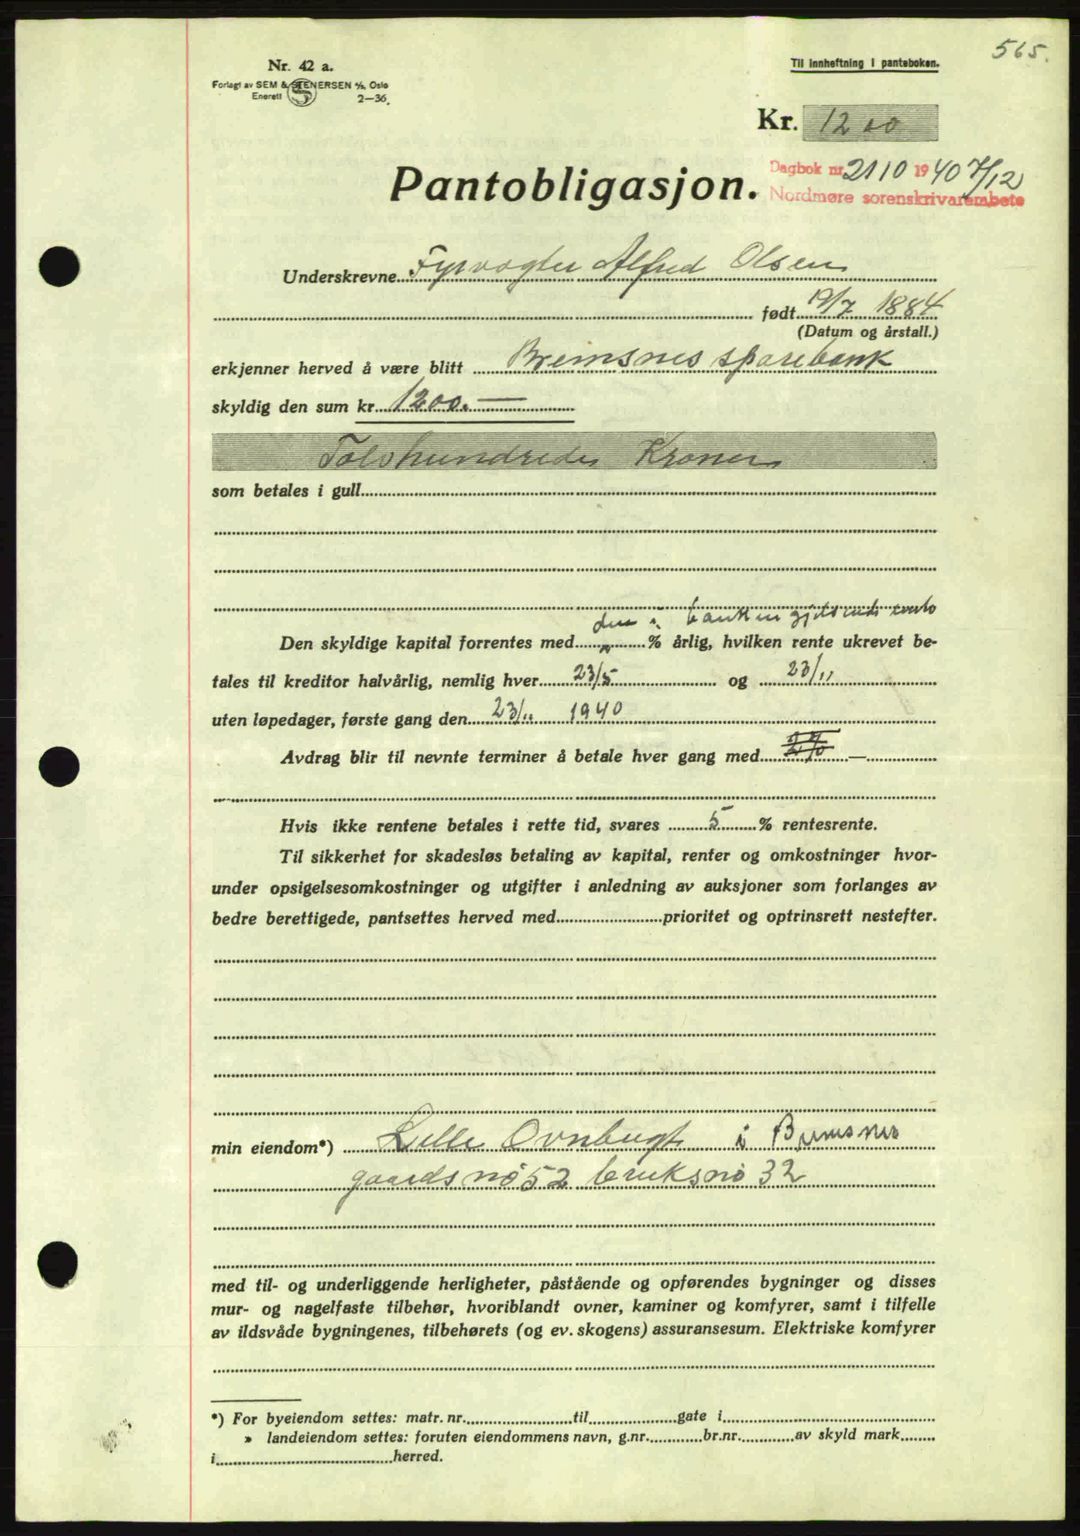 565.
Nr. 42 a.
Til innheftning i panteboken.
Forlagt av SEM & STENERSEN A/S, Oslo
Enerett 2-36.
Kr. 1200
Pantobligasjon.
Dagbok nr. 2110 1940 7/12
Nordmøre sorenskrivarembete
Underskrevne Fyrvogter Alfred Olsen
født 19/7 1884
(Datum og årstall.)
erkjenner herved å være blitt Bremsnes sparebank
skyldig den sum kr. 1200.—
Tolvhundrede Kroner
som betales i gull
den i banken gjeldende rente
Den skyldige kapital forrentes med % årlig, hvilken rente ukrevet be-
tales til kreditor halvårlig, nemlig hver 23/5 og 23/11
uten løpedager, første gang den 23/11 1940
Avdrag blir til nevnte terminer å betale hver gang med —
Hvis ikke rentene betales i rette tid, svares 5 % rentesrente.
Til sikkerhet for skadesløs betaling av kapital, renter og omkostninger hvor-
under opsigelsesomkostninger og utgifter i anledning av auksjoner som forlanges av
bedre berettigede, pantsettes herved med prioritet og optrinsrett nestefter.
min eiendom*) Lille Ovnbugt i Bremsnes
gaardsno 52 bruksno 32
med til- og underliggende herligheter, påstående og opførendes bygninger og disses
mur- og nagelfaste tilbehør, hvoriblandt ovner, kaminer og komfyrer, samt i tilfelle
av ildsvåde bygningenes, tilbehørets (og ev. skogens) assuransesum. Elektriske komfyrer
*) For byeiendom settes: matr. nr. til gate i
» landeiendom settes: foruten eiendommens navn, g.nr. br.nr. av skyld mark
i herred.